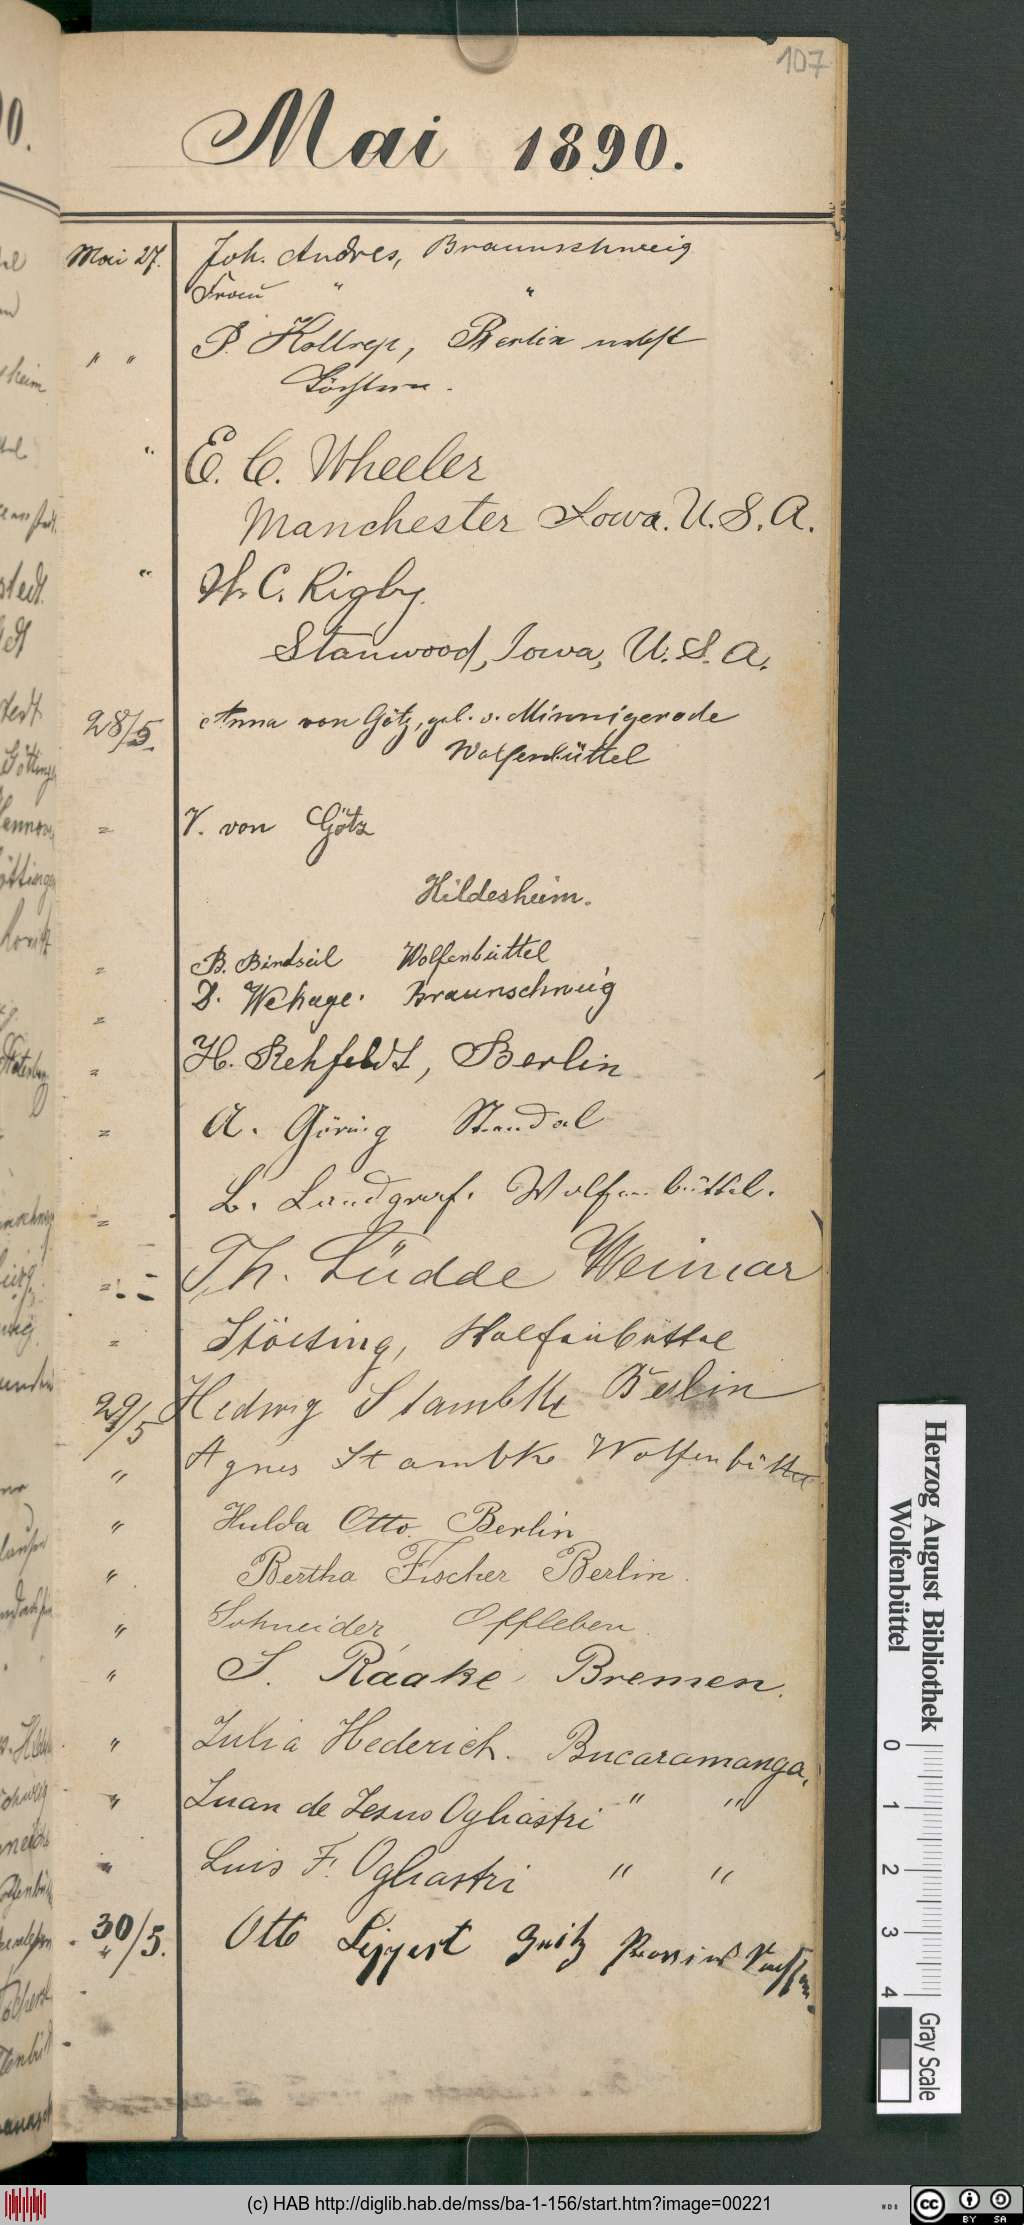 107
Mai 1890.
Mai 27. Joh. Andres, Braunschweig
Frau " "
" " P. Kollrep, Berlin nebst
Töchtern.
" E. C. Wheeler
Manchester Iowa. U. S. A.
" W. C. Rigby.
Stanwood, Iowa, U. S. A.
28/5. Anna von Götz, geb. v. Minnigerode
Wolfenbüttel
= V. von Götz
Hildesheim.
= B. Bindseil Wolfenbüttel
= D. Wehage. Braunschweig
= H. Rehfeldt, Berlin
= A. Göring Stendal
= L. Landgraf. Wolfenbüttel.
= Th. Lüdde Weimar
= Stölting, Wolfenbüttel
29/5 Hedwig Stambke Berlin
" Agnes Stambke Wolfenbüttel
" Hulda Otto Berlin
" Bertha Fischer Berlin.
" Schneider Offleben.
" S. Raake Bremen.
" Julia Hederich. Bucaramanga,
" Juan de Jesus Ogliastri " "
" Luis F. Ogliastri " "
30/5. Otto Lippert Provinz
Herzog August Bibliothek
Wolfenbüttel
0 1 2 3 4
Gray Scale
(c) HAB http://diglib.hab.de/mss/ba-1-156/start.htm?image=00221
WDB
cc BY SA